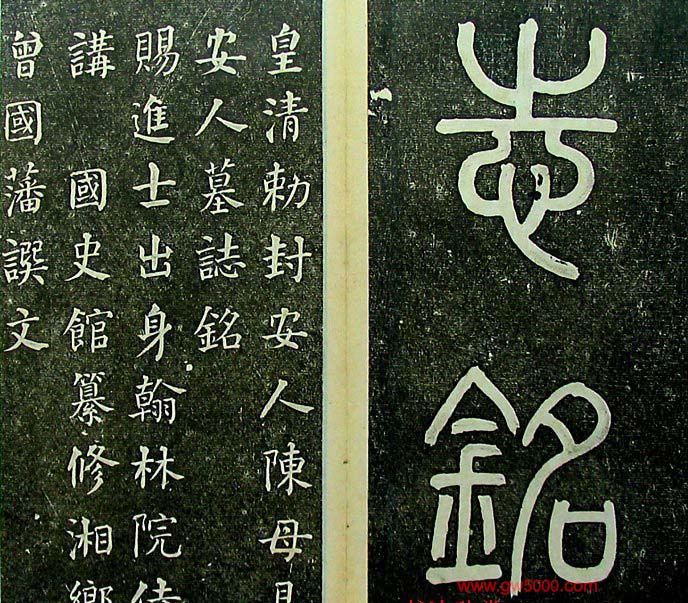 志銘
皇清勅封安人陳母
安人墓誌銘
賜進士出身翰林院
講 國史館纂修湘鄉
曾國藩譔文
www.gw5000.com